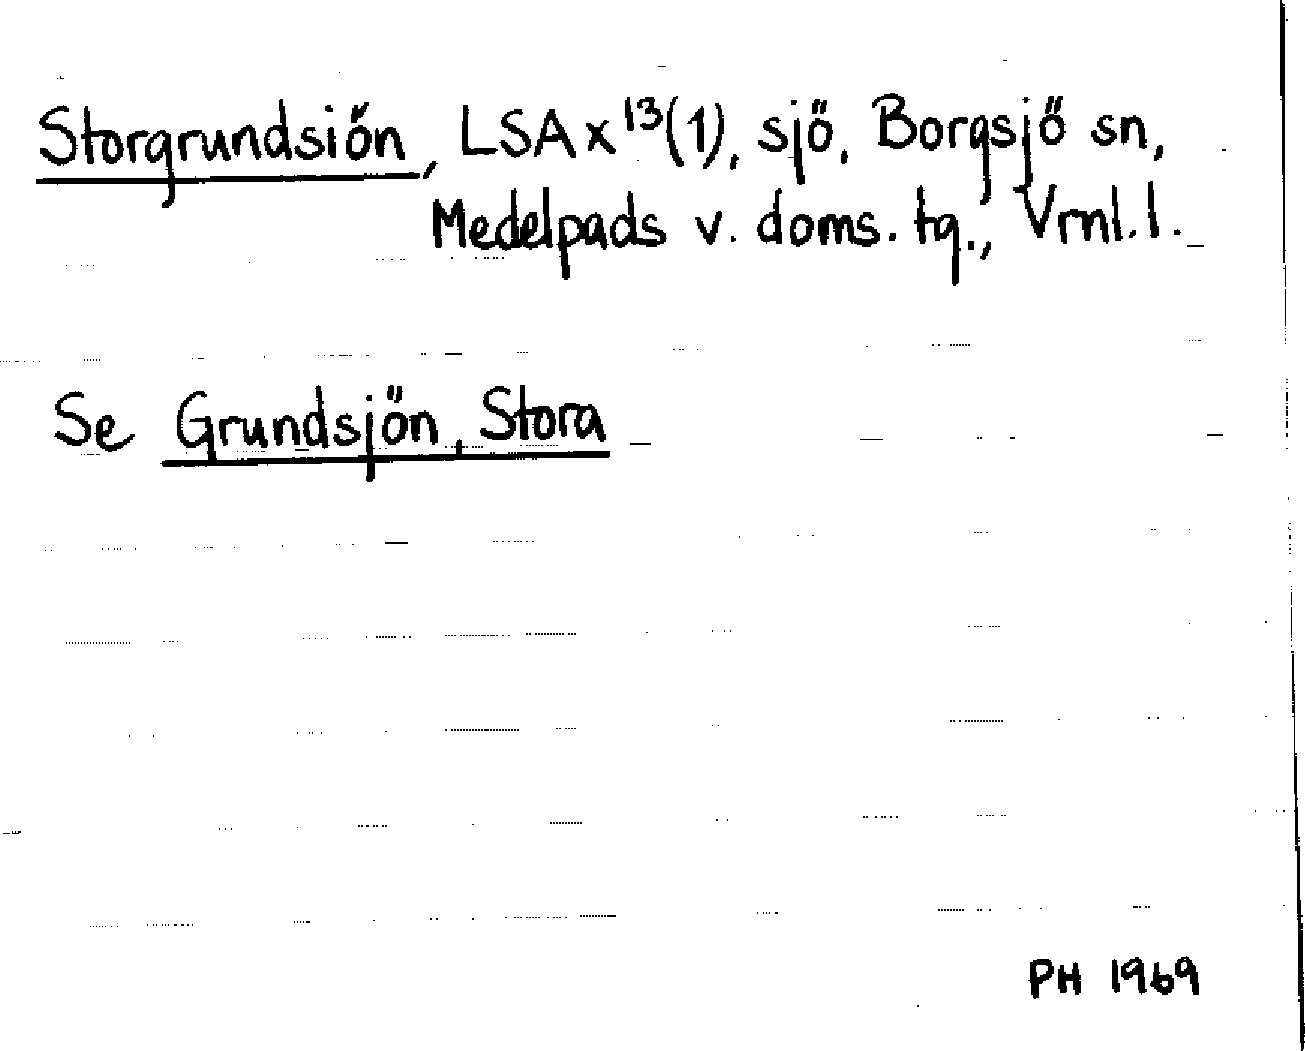 Storgrundsiön, LSA x 13(1), sjö, Borgsjö sn,
Medelpads v. doms. tg., Vrnl. l.
Se Grundsjön, Stora
PH 1969